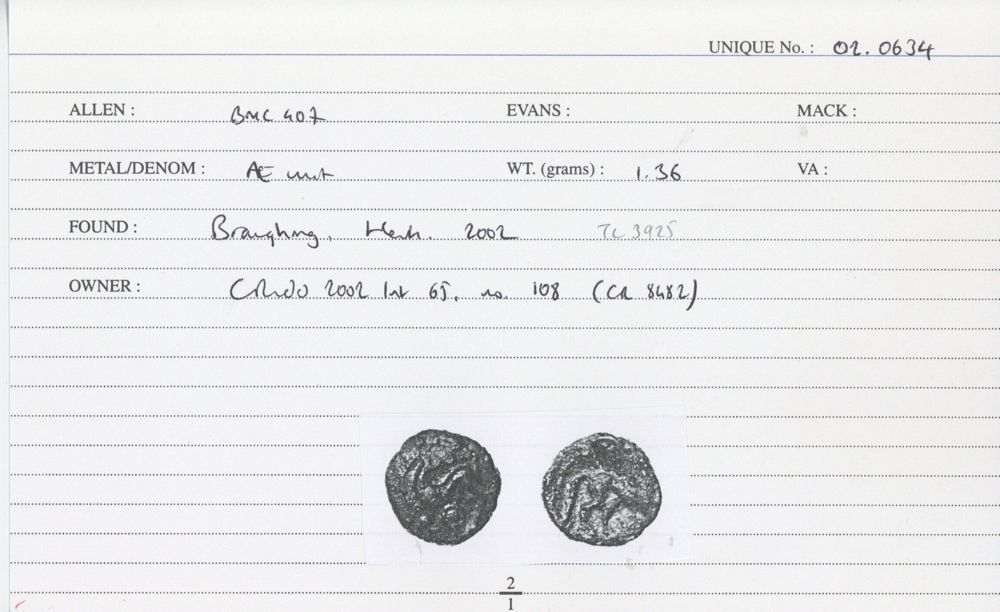 UNIQUE No. : 02.0634
ALLEN : BMC 407 EVANS : MACK :
METAL/DENOM : Æ unit WT. (grams) : 1.36 VA :
FOUND : Braughing, Herts. 2002 TL 3925
OWNER : 2002 65, no. 108 (CR 8482)
2
1